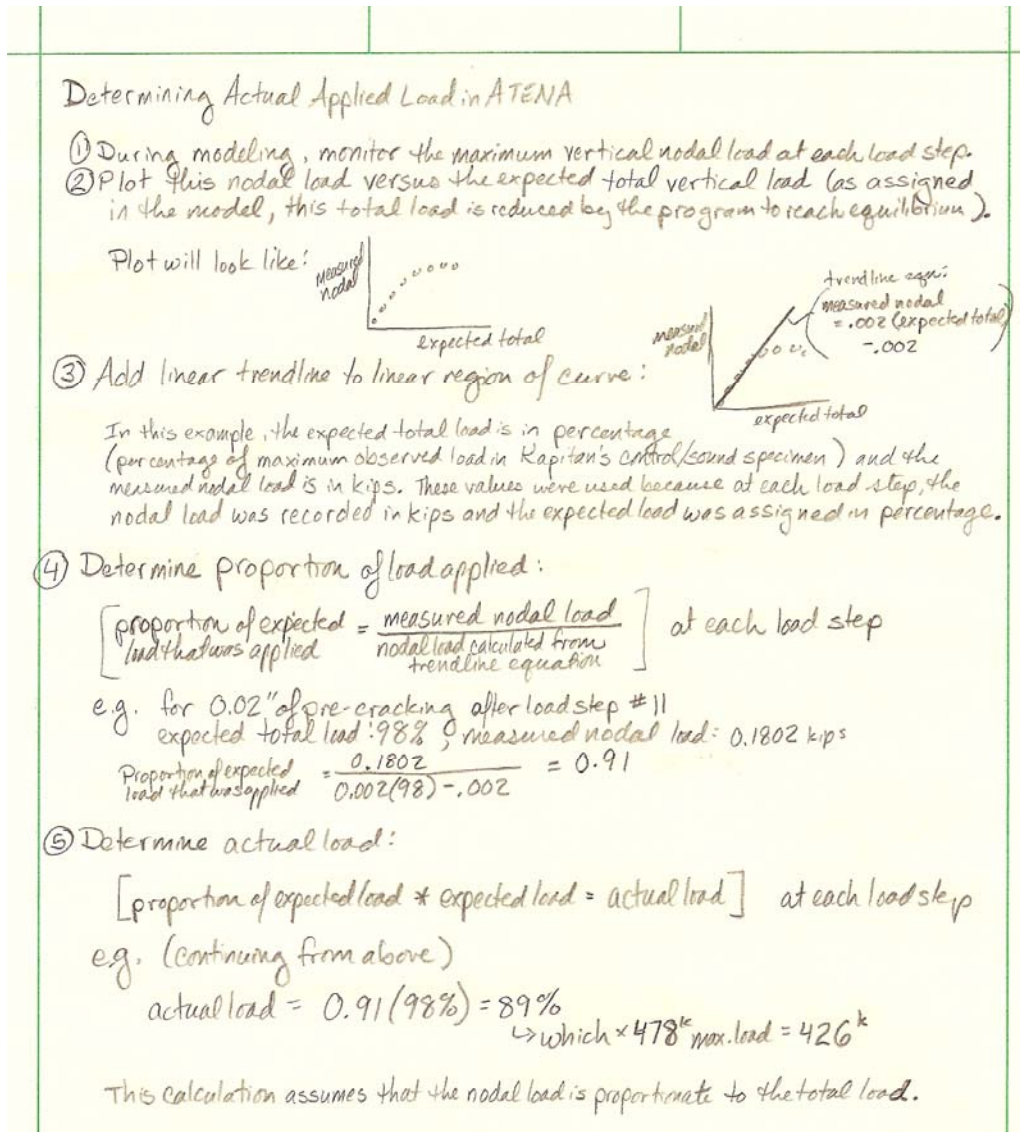 Determining Actual Applied Load in ATENA
① During modeling, monitor the maximum vertical nodal load at each load step.
② Plot this nodal load versus the expected total vertical load (as assigned
in the model, this total load is reduced by the program to reach equilibrium).
Plot will look like:
measured
nodal
expected total
trendline eqn:
measured nodal
= .002 (expected total)
-.002
measured
nodal
expected total
③ Add linear trendline to linear region of curve:
In this example, the expected total load is in percentage
(percentage of maximum observed load in Kapitan's control/sound specimen) and the
measured nodal load is in kips. These values were used because at each load step, the
nodal load was recorded in kips and the expected load was assigned in percentage.
④ Determine proportion of load applied:
[proportion of expected = measured nodal load
load that was applied nodal load calculated from
trendline equation] at each load step
e.g. for 0.02" of pre-cracking after load step #11
expected total load: 98% ; measured nodal load: 0.1802 kips
Proportion of expected = 0.1802 = 0.91
load that was applied 0.002(98) -.002
⑤ Determine actual load:
[proportion of expected load * expected load = actual load] at each load step
e.g. (continuing from above)
actual load = 0.91 (98%) = 89%
↳ which × 478ᵏ max. load = 426ᵏ
This calculation assumes that the nodal load is proportionate to the total load.